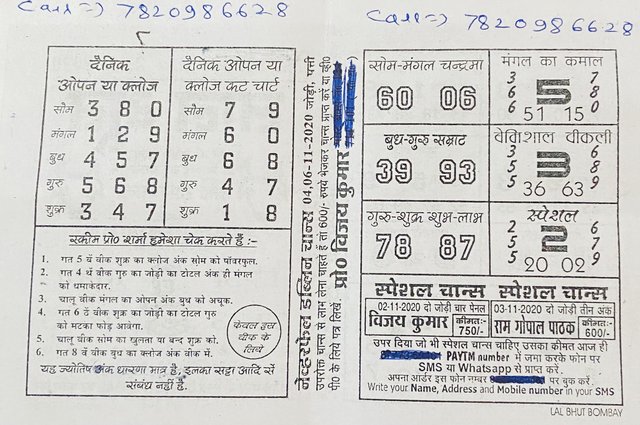 Call => 7820986628
Call => 7820986628
दैनिक
ओपन या क्लोज
सोम 3 8 0
मंगल 1 2 9
बुध 4 5 7
गुरु 5 6 8
शुक्र 3 4 7
दैनिक ओपन या
क्लोज कट चार्ट
सोम 7 9
मंगल 6 0
बुध 6 8
गुरु 4 7
शुक्र 1 8
स्कीम प्रो० शर्मा हमेशा चेक करते हैं :-
1. गत 5 वें वीक शुक्र का क्लोज अंक सोम को पॉवरफुल.
2. गत 4 थें वीक गुरु का जोड़ी का टोटल अंक ही मंगल
को धमाकेदार.
3. चालू वीक मंगल का ओपन अंक बुध को अचूक.
4. गत 6 वें वीक शुक्र का जोड़ी का टोटल गुरु
को मटका फोड़ आवेगा.
5. चालू वीक सोम का खुलता या बन्द शुक्र को.
6. गत 8 वें वीक बुध का क्लोज अंक वीक में.
केवल इस
वीक के
लिये
यह ज्योतिष अंक धारणा मात्र है, इनका सट्टा आदि सें
संबंध नहीं है.
चान्स 04,06-11-2020 जोड़ी, पत्ती
उपरोक्त चान्स से लाभ लेना चाहते हैं तो 600/- रुपये भेजकर चान्स प्राप्त करें या
पी० के लिये पत्र लिखें.
प्रो० विजय कुमार
सोम-मंगल चन्द्रमा
60 06
बुध-गुरु सम्राट
39 93
गुरु-शुक्र शुभ-लाभ
78 87
मंगल का कमाल
3 7
6 5 8
6 0
51 15
वीकली
3 6
5 3 8
5 9
36 63
स्पेशल
2 6
5 2 7
5 9
20 02
स्पेशल चान्स स्पेशल चान्स
02-11-2020 दो जोड़ी चार पेनल
विजय कुमार कीमत:- 750/-
03-11-2020 दो जोड़ी तीन अंक
राम गोपाल पाठक कीमत:- 600/-
उपर दिया जो भी स्पेशल चान्स चाहिए उसका कीमत आज ही
PAYTM number में जमा करके फोन पर
SMS या Whatsapp से प्राप्त करें.
अपना आर्डर इस फोन नम्बर पर बुक करें.
Write your Name, Address and Mobile number in your SMS
LAL BHUT BOMBAY